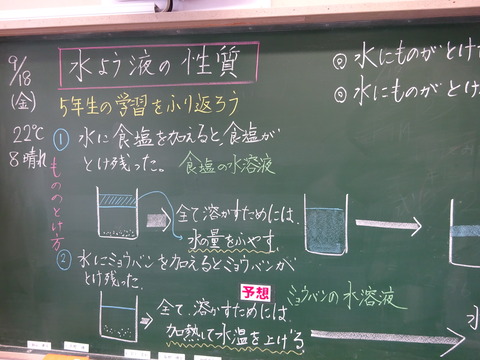 9/18
(金)
22℃
8 晴れ
水よう液の性質
5年生の学習をふり返ろう
もののとけ方
① 水に食塩を加えると、食塩が
とけ残った。 食塩の水溶液
全て溶かすためには、
水の量をふやす。
② 水にミョウバンを加えるとミョウバンが
とけ残った。
予想
ミョウバンの水溶液
全て溶かすためには、
加熱して水温を上げる
◎ 水にものがとけた
◎ 水にものがとけ
水